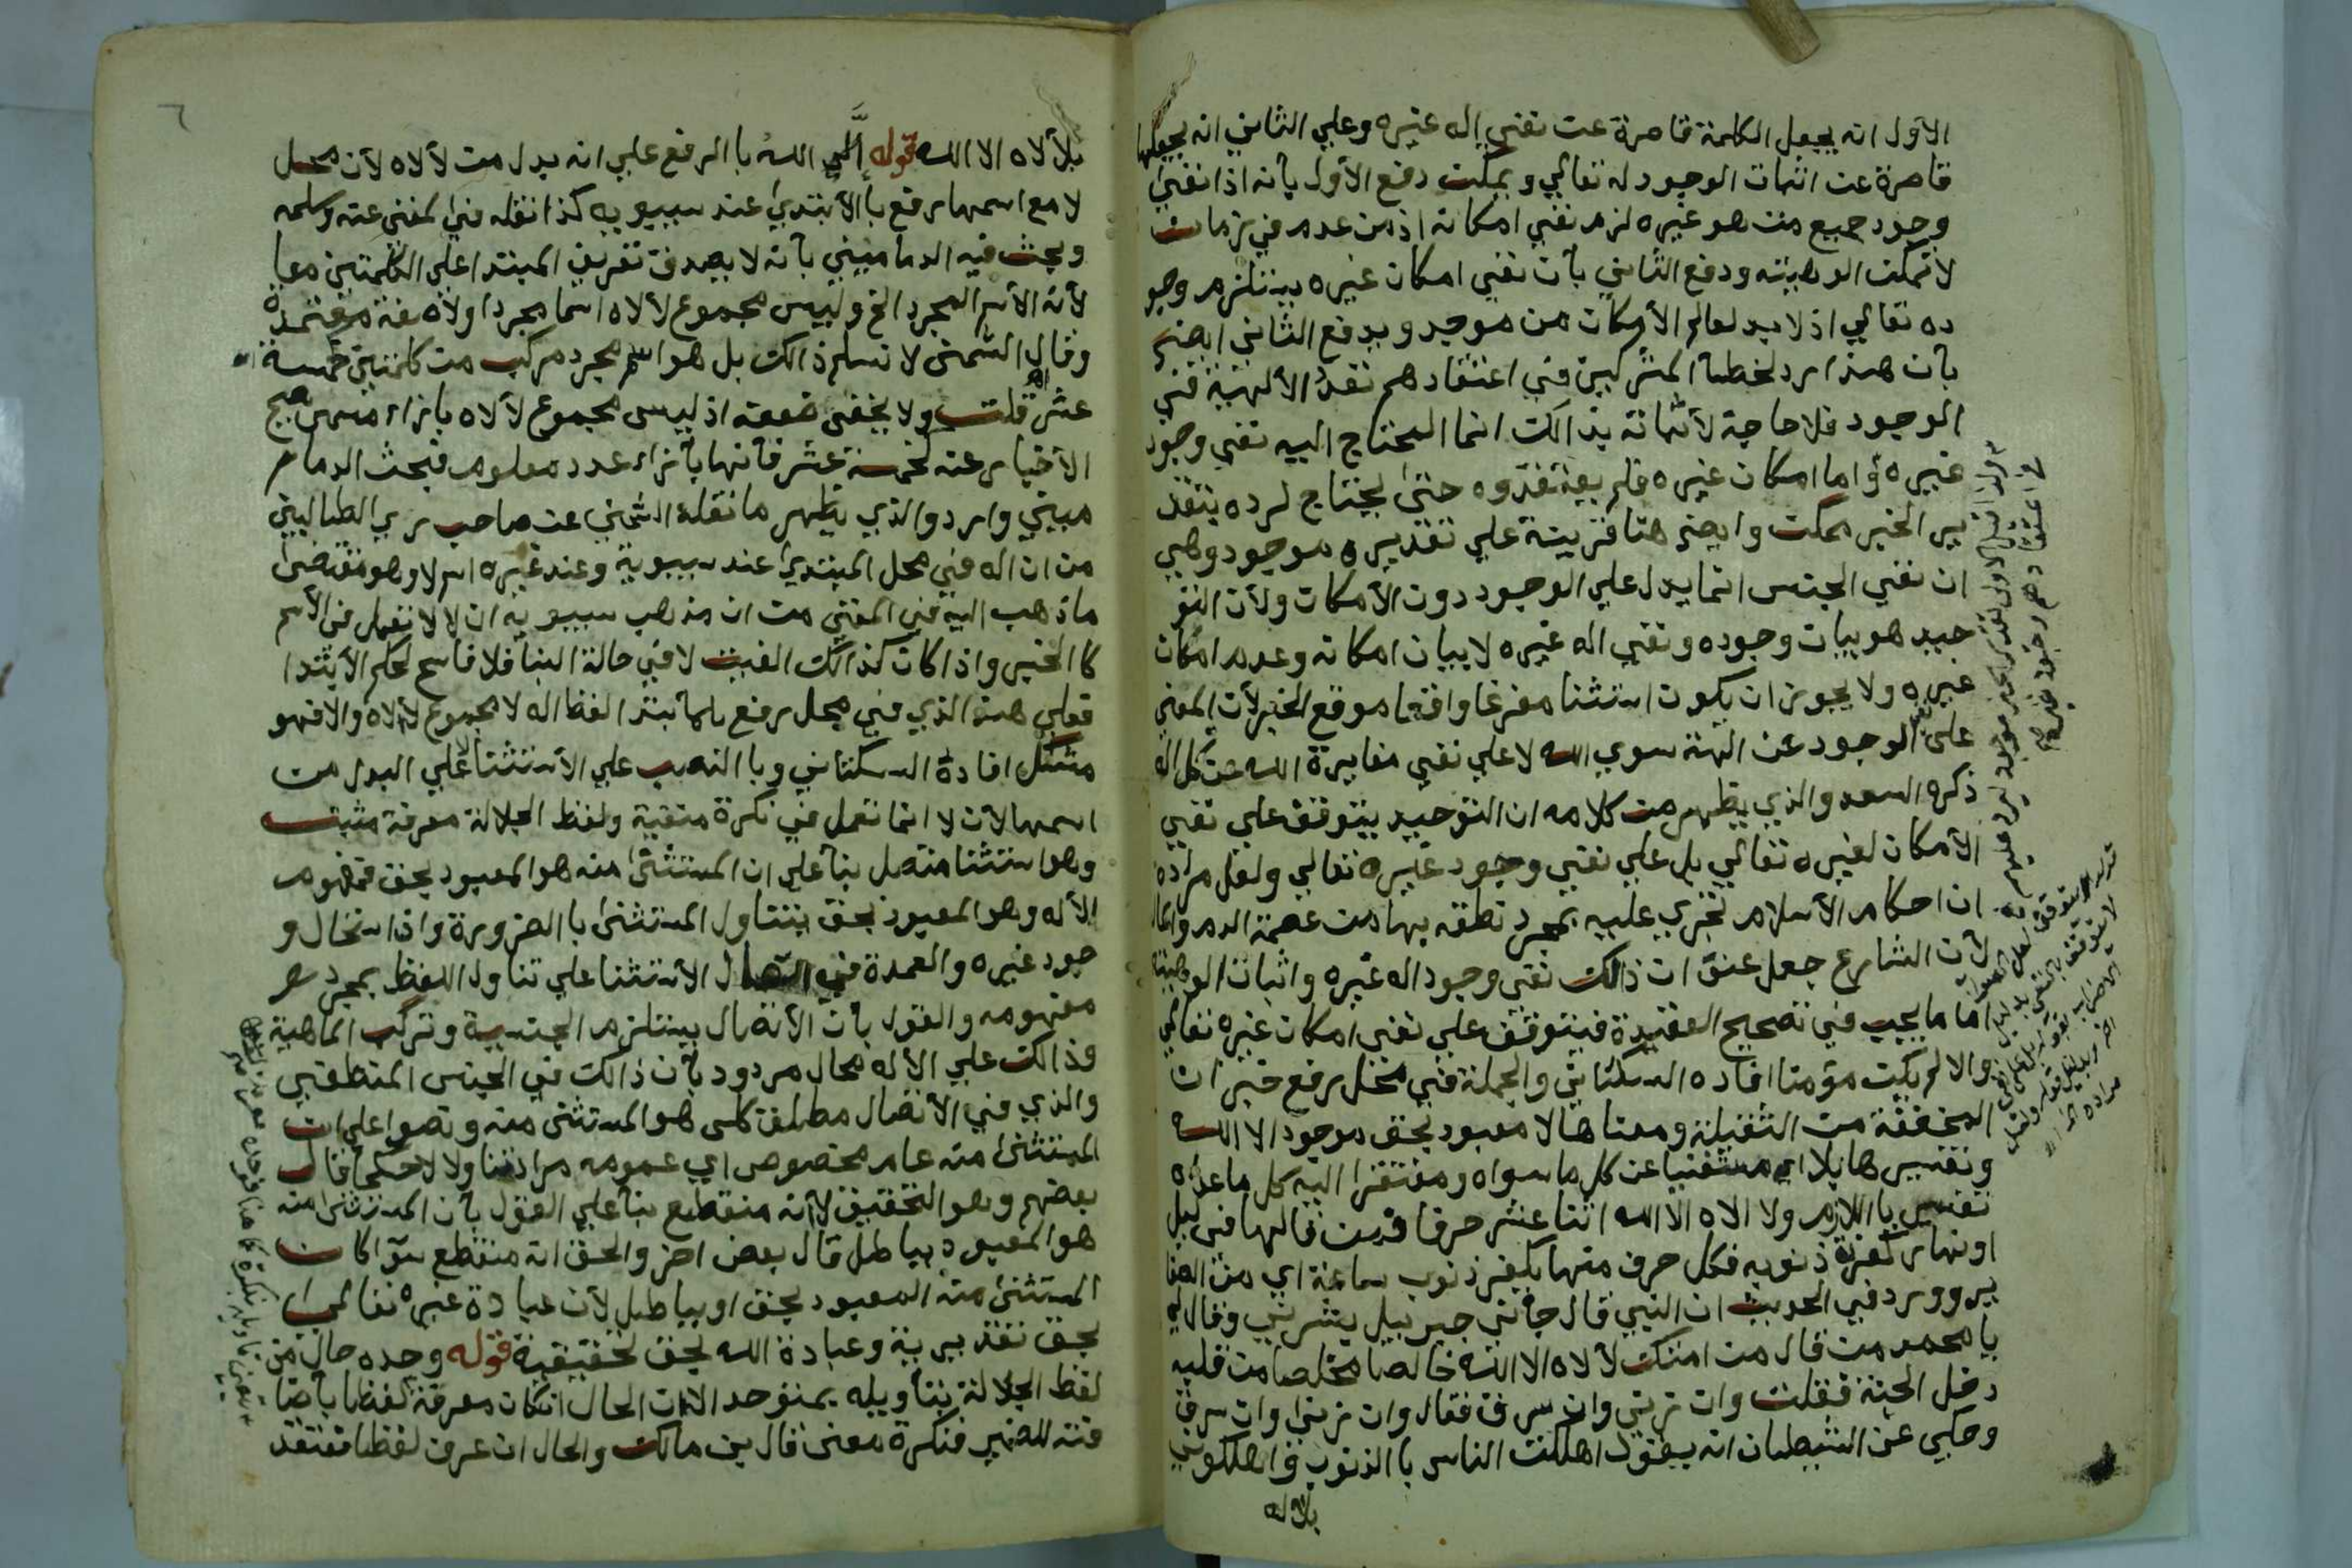 الاول انه يجعل الكلمة قاصرة عن نفي إله غيره وعلي الثاني انه يجعلها
قاصرة عن اثبات الوجود له تعالي ويمكن دفع الأول بأنه اذا نفي
وجود جميع من هو غيره لزم نفي امكانه اذ من عدم في زمان
لا تمكن الوهيته ودفع الثاني بأن نفي امكان غيره يستلزم وجو
ده تعالي اذ لا بد لعالم الأمكان من موجد ويدفع الثاني ايض
بأن هذا رد لخطأ المشركين في اعتقادهم تعدد الألهية في
الوجود فلا حاجة لأثباته بذالك انما المحتاج اليه نفي وجود
غيره واما امكان غيره فلم يعتقدوه حتى يحتاج لرده بتقد
ير الخبر ممكن وايض هنا قرينة علي تقديره موجود وهي
ان نفي الجنس انما يدل علي الوجود دون الأمكان ولأن التو
حيد هو بيان وجوده ونفي اله غيره لا بيان امكانه وعدم امكان
غيره ولا يجوز ان يكون استثنا مفرغا واقعا موقع الخبر لأن المعني
على نفي الوجود عن الهة سوي الله لا علي نفي مغايرة الله عن كل اله
ذكره السعد والذي يظهر من كلامه ان التوحيد يتوقف علي نفي
الأمكان لغيره تعالي بل علي نفي وجود غيره تعالي ولعل مراده
ان احكام الأسلام تجري عليه بمجرد نطقه بها من عصمة الدم والما
لأن الشارع جعل عنوان ذالك نفي وجود اله غيره واثبات الوهيته
اما ما يجب في تصحيح العقيدة فيتوقف علي نفي امكان غيره تعالي
والا لم يكن مؤمنا افاده السكتاني والجملة في محل رفع خبر ان
المخففة من الثقيلة ومعناها لا معبود بحق موجود الا الله
وتفسيرها بلا اي مستغنيا عن كل ما سواه ومفتقرا اليه كل ما عداه
تفسير باللازم ولا الاه الا الله اثنا عشر حرفا فمن قالها في ليل
او نهار كفرة ذنوبه فكل حرف منها يكفر ذنوب ساعة اي من الصغا
ير وورد في الحديث ان النبي قال جاني جبريل يبشرني وقال لي
يا محمد من قال من امتك لأ لاه الا الله خالصا مخلصا من قلبه
دخل الجنة فقلت وان زني وان سرق فقال وان زنى وان سرق
وحكي عن الشيطان انه يقول اهلكت الناس با الذنوب واهلكوني
بلا اله
٦
بلأ لاه الا الله قوله إلَّا الله با الرفع علي انه بدل من لأ لاه لأن محل
لا مع اسمها رفع با الأبتدي عند سيبويه كذا نقله في المغني عنه وسلمه
وبحث فيه الدماميني بأنه لا يصدق تعريف المبتدا علي الكلمتين معا
لأنه الأسم المجرد الخ وليس مجموع لأ لاه اسما مجردا ولا صفة معتمدة
وقال الشمنى لا نسلم ذالك بل هو اسم مجرد مركب من كلمتين خمسة
عشر قلت ولا يخفى ضعفه اذ ليس مجموع لأ لاه بازاء مسمى صح
الأخبار عنه كخمسة عشر فأنها بأزاء عدد معلوم فبحث الدما
ميني وارد والذي يظهر ما نقله الشمني عن صاحب ري الظاليين
من ان اله في محل المبتدي عند سيبوية وعند غيره اسم لا وهو مقتضى
ما ذهب اليه في المغني من ان مذهب سيبويه ان لا لا تعمل في الأسم
كا الخبر واذا كان كذالك الفيت لا في حالة البنا فلا ناسخ لحكم الأبتدا
فعلي هذا الذي في محل رفع بالأبتدا لفظ اله لا مجموع لأ لاه والا فهو
مشكل افادة السكتاني وبا النصب علي الأستثنا لا علي البدل من
اسمها لأن لا انما تعمل في نكرة منفية ولفظ الجلالة معرفة مثبت
وهو استثنا متصل بنأ علي ان المستثنى منه هو المعبود بحق فمفهوم
الأله وهو المعبود بحق يتناول المستثنى با الضرورة واذا ستحال و
جود غيره والعمدة في اتصال الأستثنا علي تناول اللفظ بمجرد
مفهومه والقول بأن الأتصال يستلزم الجنسية وتركب الماهية
وذالك علي الأله محال مردود بأن ذالك في الجنس المنطقي
والذي في الأتصال مطلق كلى هو المستثنى منه ونصوا علي ان
المستثنى منه عام مخصوص اي عمومه مراد تناولا لا حكما قال
بعضهم وهو التحقيق لأنه منقطع بنأ علي القول بأن المستثنى منه
هو المعبود بباطل قال بعض اخر والحق انه منقطع سوأ كان
المستثنى منه المعبود بحق او بباطل لأن عبادة غيره تعالي
بحق تقديرية وعبادة الله بحق تحقيقية قوله وحده حال من
لفظ الجلالة بتأويله بمنفوحد الان الحال انكان معرفة لفظا بأضا
فته للضمير فنكرة معنى قال بن مالك والحال ان عرف لفظا فعتقد